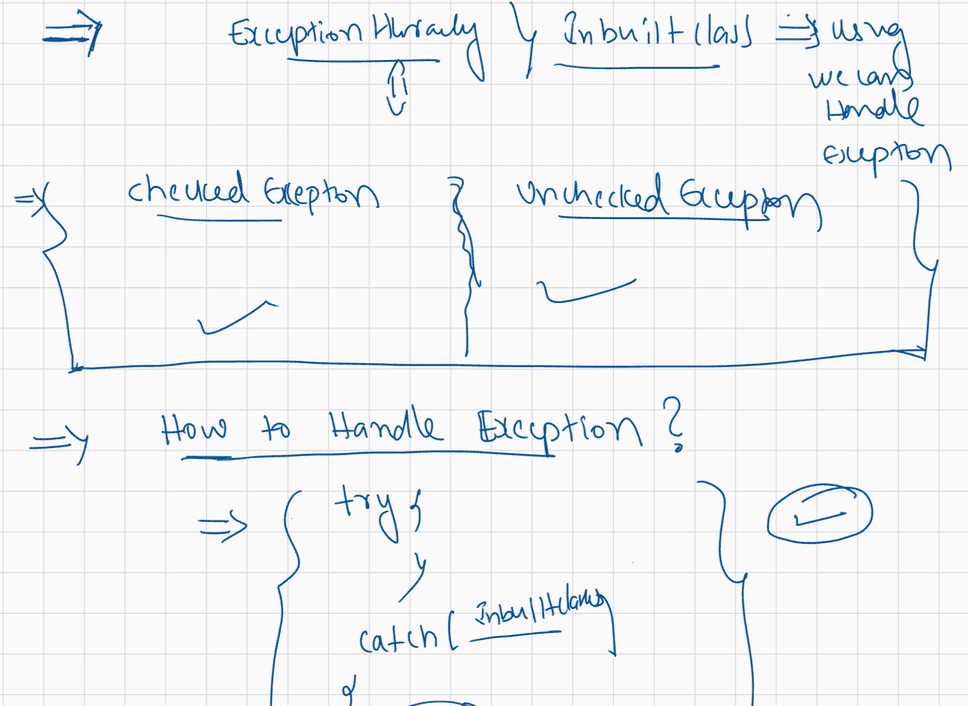 ⇒ Exception Hirarchy } Inbuilt class ⇒ using
we can
Handle
Exception
⇒ checked Exception } Unchecked Exception
⇒ How to Handle Exception ?
⇒ try {
}
catch( Inbuilt class )
{